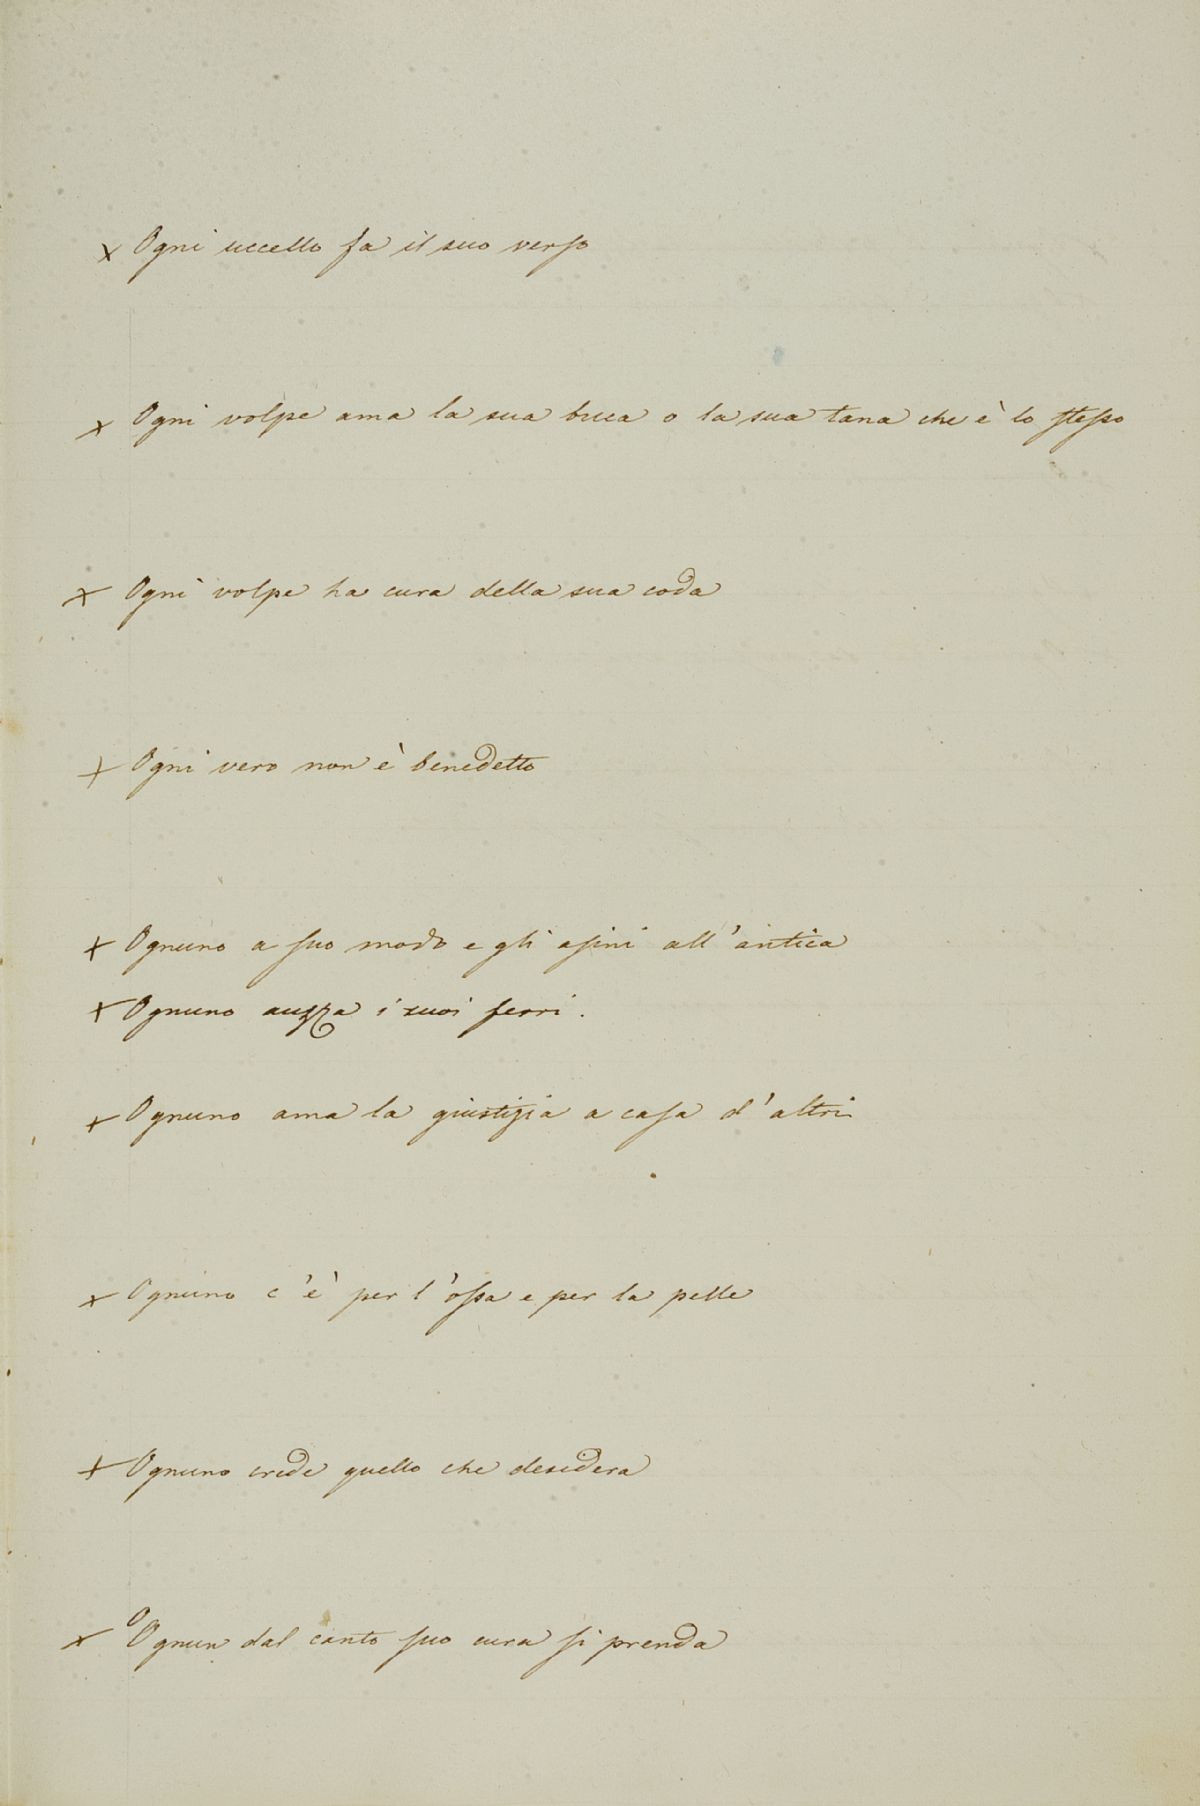 x Ogni uccello fa il suo verso
x Ogni volpe ama la sua buca o la sua tana che è lo stesso
x Ogni volpe ha cura della sua coda
x Ogni vero non è benedetto
x Ognuno a suo modo e gli asini all'antica
x Ognuno auzza i suoi ferri.
x Ognuno ama la giustizia a casa d'altri
x Ognuno c'è per l'ossa e per la pelle
x Ognuno crede quello che desidera
x Ognun dal canto suo cura si prenda